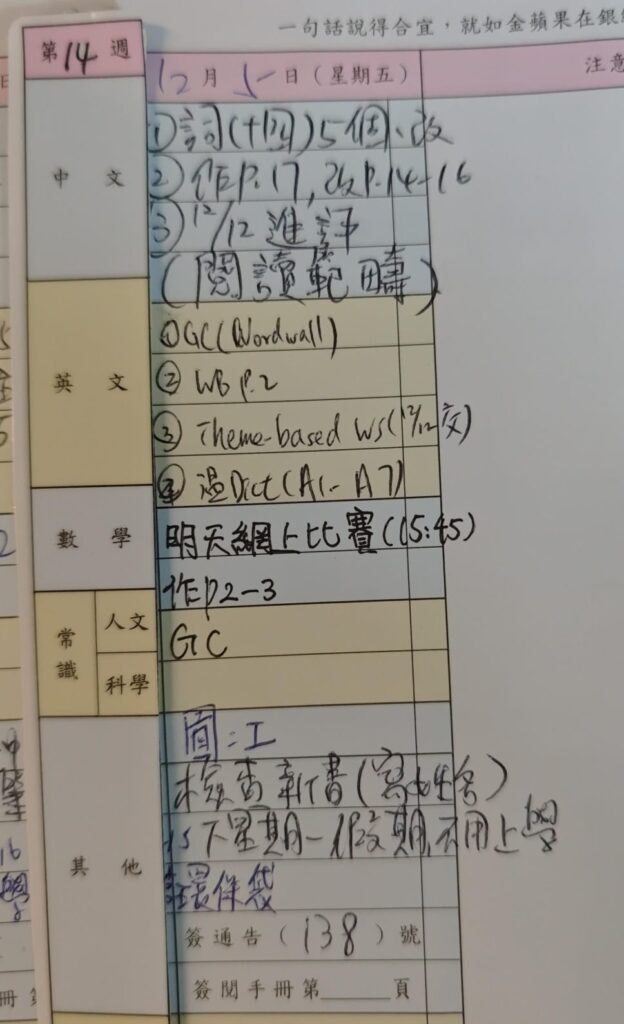 一句話說得合宜，就如金蘋果在銀
第14週
12月5日（星期五）
注意
中文
①詞(十四)5個、改
②作P.17,改P.14-16
③12/12 進評
(閱讀範疇)
英文
①GC(Wordwall)
② WB P.2
③ Theme-based WS(12/12交)
④ 溫Dict(A1-A7)
數學
明天網上比賽(15:45)
作P2-3
常識
人文
GC
科學
其他
圖:工
檢查新書(寫姓名)
15 下星期一假期,不用上學
環保袋
簽通告（138）號
簽閱手冊第＿＿＿頁